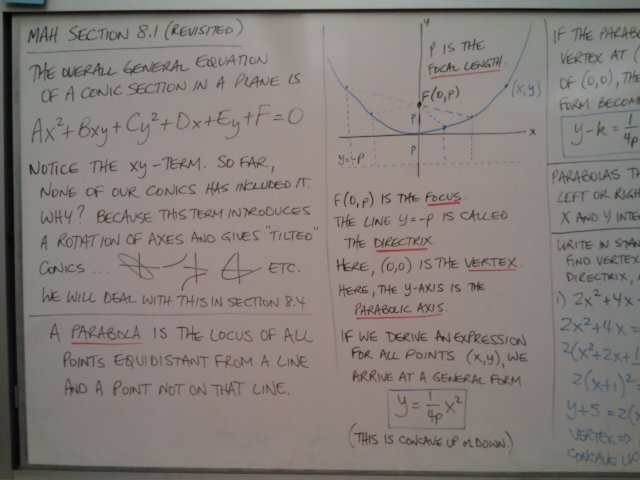 MAH SECTION 8.1 (REVISITED)
THE OVERALL GENERAL EQUATION
OF A CONIC SECTION IN A PLANE IS
Ax²+Bxy+Cy²+Dx+Ey+F=0
NOTICE THE xy-TERM. SO FAR,
NONE OF OUR CONICS HAS INCLUDED IT.
WHY? BECAUSE THIS TERM INTRODUCES
A ROTATION OF AXES AND GIVES "TILTED"
CONICS ... ETC.
WE WILL DEAL WITH THIS IN SECTION 8.4
A PARABOLA IS THE LOCUS OF ALL
POINTS EQUIDISTANT FROM A LINE
AND A POINT NOT ON THAT LINE.
y
P IS THE
FOCAL LENGTH.
F(0,P)
(x,y)
P
x
P
y=-P
F(0,P) IS THE FOCUS.
THE LINE y=-P IS CALLED
THE DIRECTRIX.
HERE, (0,0) IS THE VERTEX.
HERE, THE y-AXIS IS THE
PARABOLIC AXIS.
IF WE DERIVE AN EXPRESSION
FOR ALL POINTS (x,y), WE
ARRIVE AT A GENERAL FORM
y = 1/4P x²
(THIS IS CONCAVE UP or DOWN.)
IF THE PARAB
VERTEX AT (
OF (0,0), THE
FORM BECOM
y-k = 1/4P
PARABOLAS TH
LEFT OR RIGH
X AND Y INTE
WRITE IN STAN
FIND VERTEX
DIRECTRIX,
1) 2x²+4x-
2x²+4x-
2(x²+2x+1
2(x+1)²-
y+5=2(x
VERTEX ⇒
CONCAVE UP